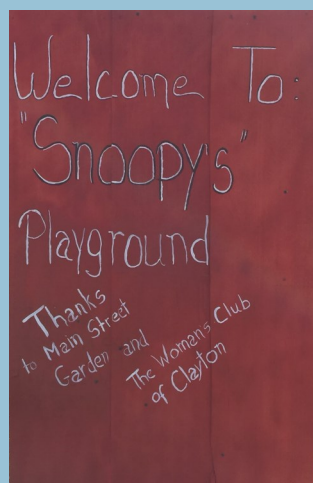 Welcome To:
"Snoopy's"
Playground
Thanks
to Main Street
Garden and
The Womans Club
of Clayton